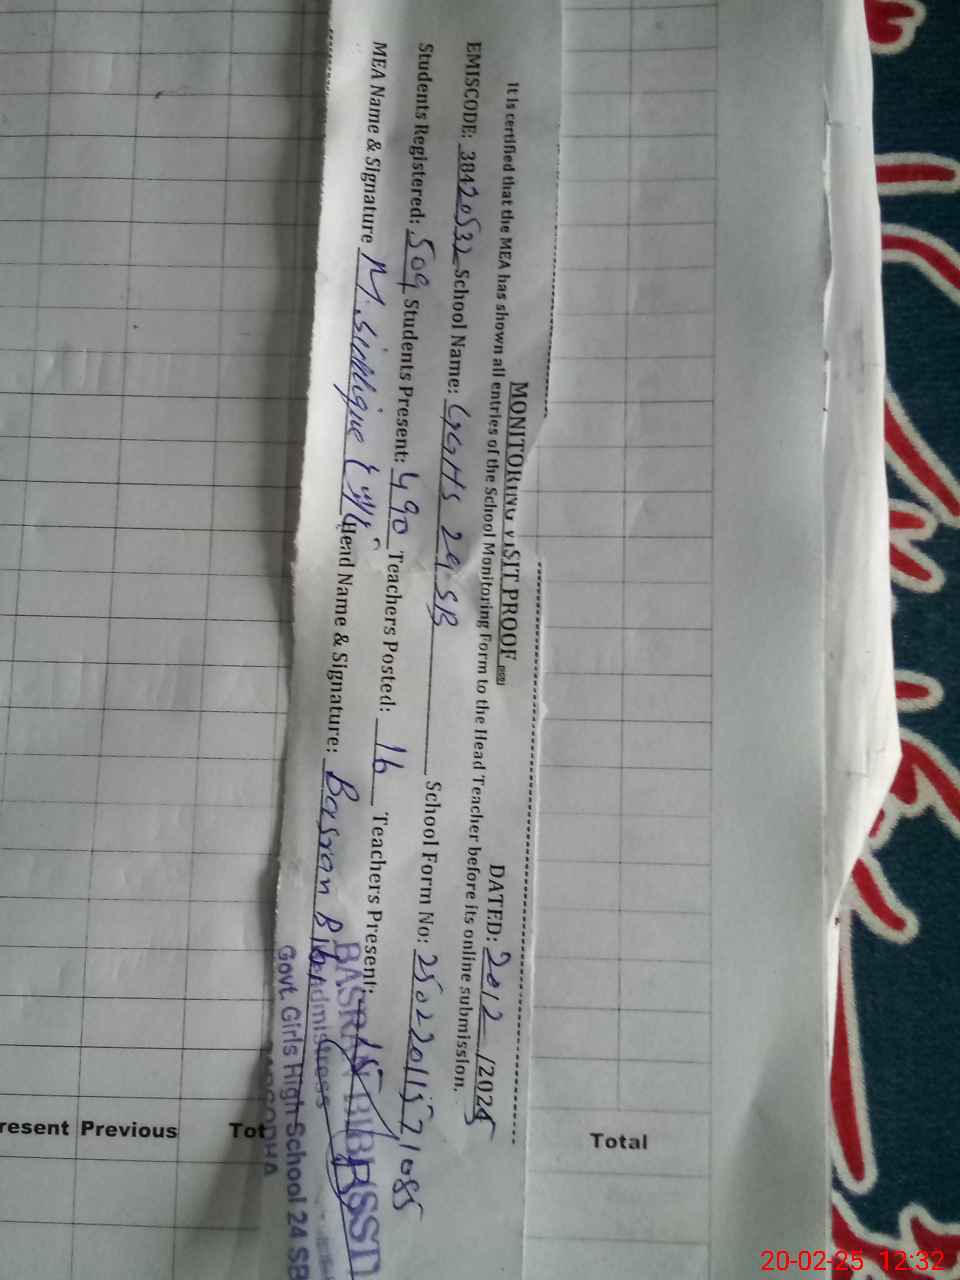 MONITORING VISIT PROOF
DATED: 20/2/2025
It is certified that the MEA has shown all entries of the School Monitoring Form to the Head Teacher before its online submission.
EMISCODE: 38420532 School Name: GGHS 24 SB School Form No:
Students Registered: 509 Students Present: 490 Teachers Posted: 16 Teachers Present: 15
MEA Name & Signature M. Siddique Head Name & Signature: Basran Bibi
BASRAN BIBI SST
Headmistress
Govt. Girls High School 24 SB
SARGODHA
resent Previous Tot
Total
20-02-25 12:32